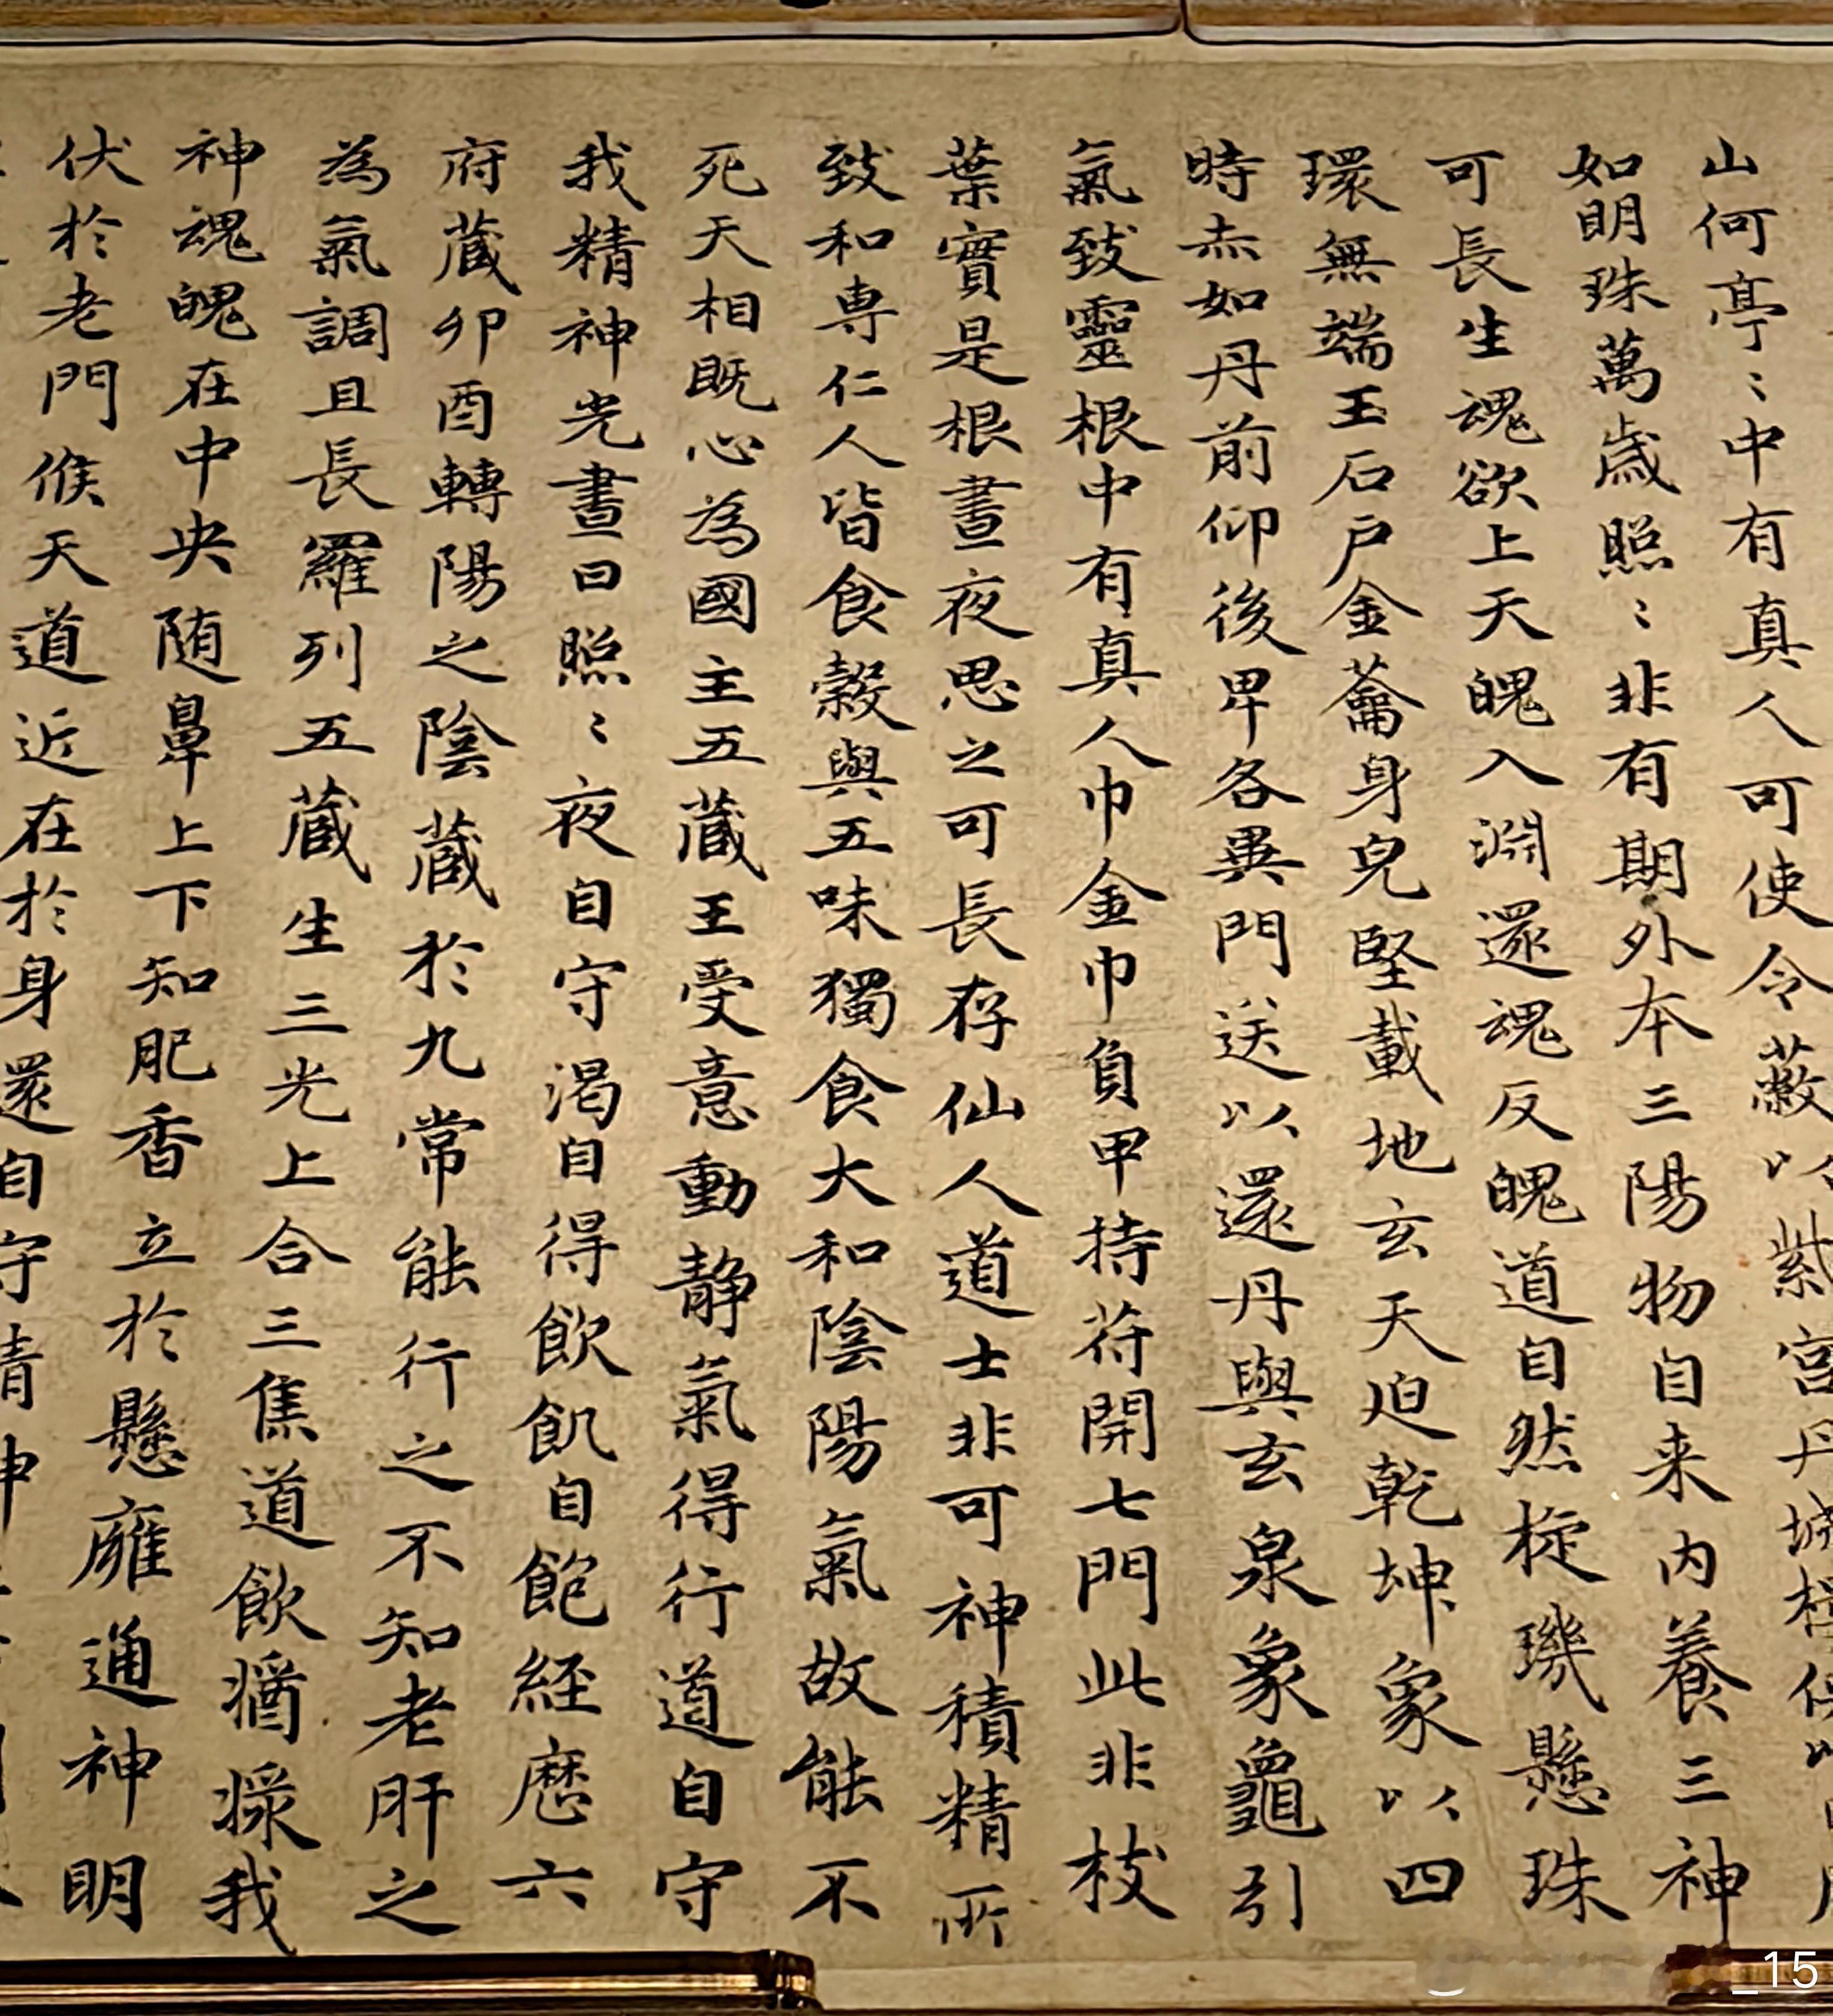 山何亭〻中有真人可使令蔽以紫宮丹城
如明珠萬歲照〻非有期外本三陽物自来內養三神
可長生魂欲上天魄入淵還魂反魄道自然琁璣懸珠
環無端玉石戶金籥身皃堅載地玄天迫乾坤象以四
時赤如丹前仰後卑各異門送以還丹與玄泉象龜引
氣致靈根中有真人巾金巾負甲持苻開七門此非枝
葉實是根晝夜思之可長存仙人道士非可神積精所
致和專仁人皆食穀與五味獨食大和陰陽氣故能不
死天相既心為國主五蔵王受意動静氣得行道自守
我精神光晝日照〻夜自守渴自得飲飢自飽経歷六
府蔵卯酉轉陽之陰蔵於九常能行之不知老肝之
為氣調且長羅列五蔵生三光上合三焦道飲醬漿我
神魂魄在中央随鼻上下知肥香立於懸廱通神明
伏於老門候天道近在於身還自守精神
_15